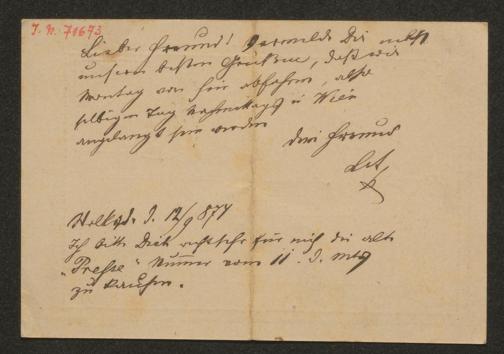 I. N. 71693
Lieber Freund! Vermelde Dir nebst
unsern besten Grüßen, daß wir
Montag von hier abfahren, also
selbigen Tag Nachmittags in Wien
angelangt sein werden
Dein Freund
d. 12/9 877
Ich bitte Dich recht sehr für mich die alte
"Presse" Nummer vom 11. d. Mts
zu kaufen.